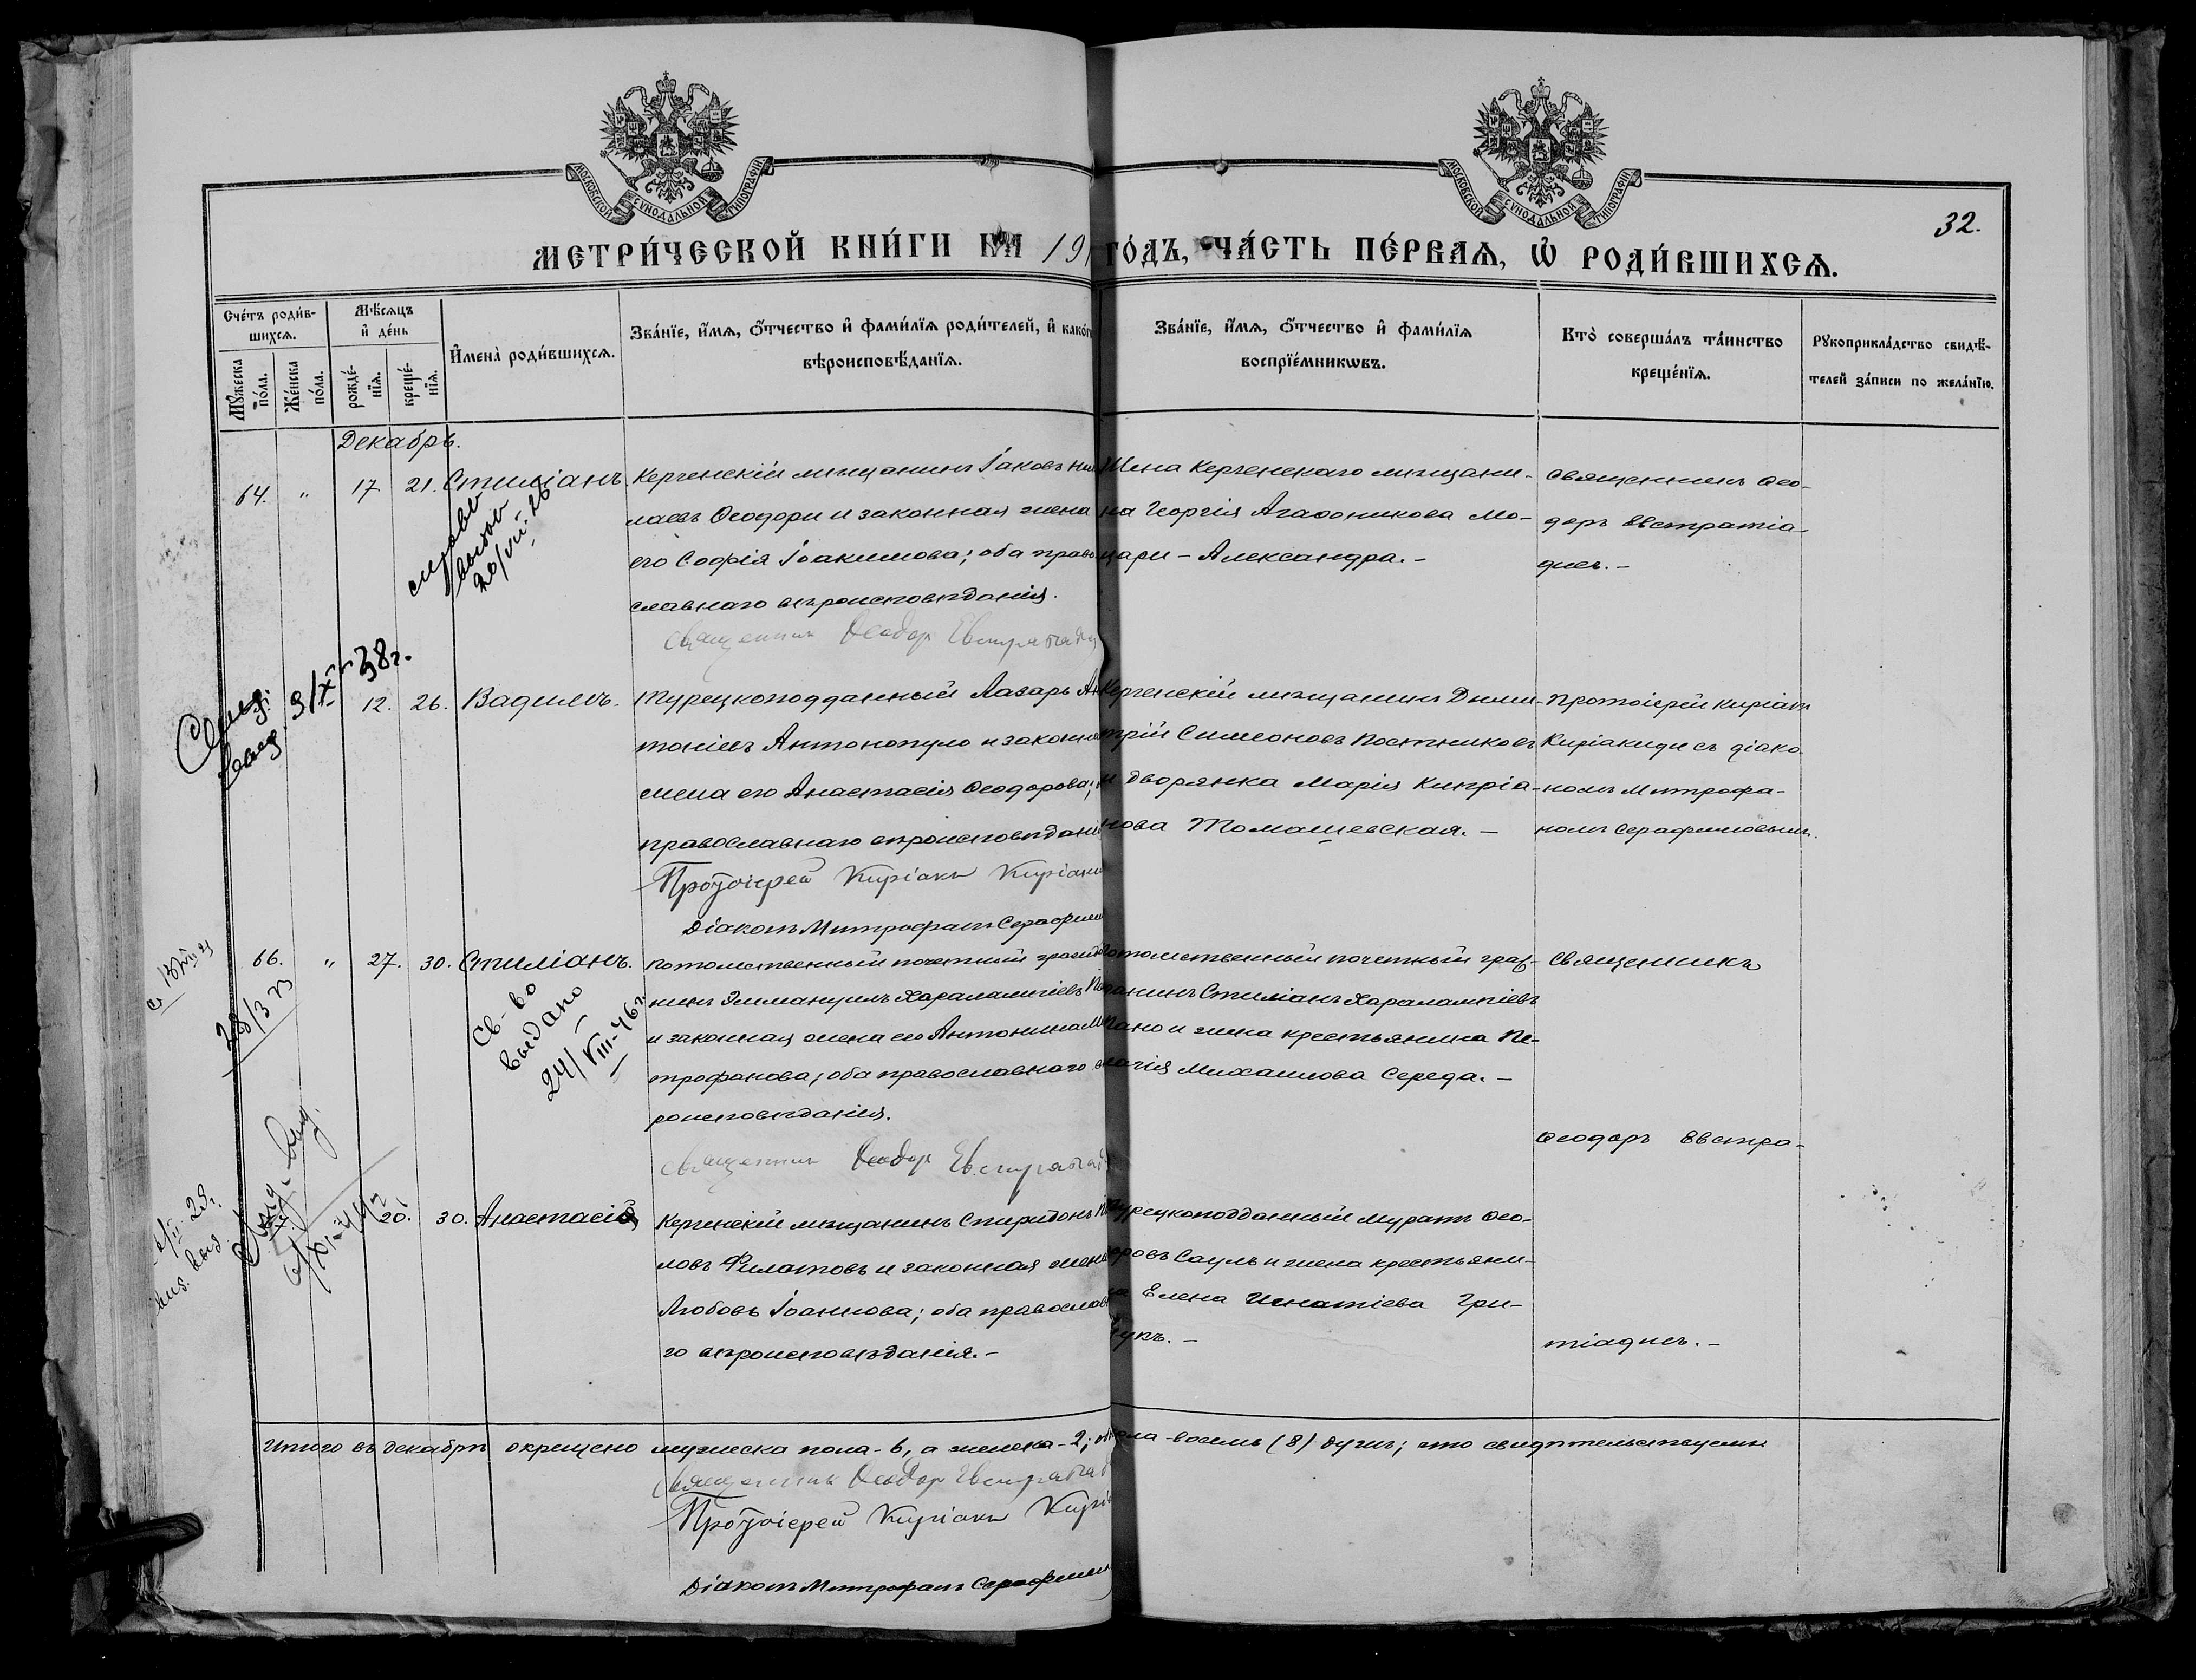 МОСКОВСКОЙ СѴНОДАЛЬНОЙ ТИПОГРАФІИ
МОСКОВСКОЙ СѴНОДАЛЬНОЙ ТИПОГРАФІИ
32.
МЕТРИ́ЧЕСКОЙ КНИ́ГИ НА 191 ГО́ДЪ, ЧА́СТЬ ПЕ́РВАѦ, Ѡ҆ РОДИ́ВШИХСѦ.
Сче́тъ роди́в-
шихсѧ.
Мꙋ́жеска по́ла.
Же́нска по́ла.
Мѣ́сѧцъ
и҆ де́нь
рожде́-
нїѧ.
креще́-
нїѧ.
И҆мена̀ роди́вшихсѧ.
Зва́нїе, и҆́мѧ, ѻ҆́тчество и҆ фами́лїѧ роди́телей, и҆ како́г
вѣроисповѣ́данїѧ.
Зва́нїе, и҆́мѧ, ѻ҆́тчество и҆ фами́лїѧ
воспрїе́мникѡвъ.
Кто̀ соверша́лъ та́инство
креще́нїѧ.
Рꙋкоприкла́дство свидѣ́-
телей за́писи по жела́нїю.
Декабрь.
64. " 17 21. Стиліанъ.
Керченскій мѣщанинъ Іаковъ Ник
лаевъ Ѳеодори и законная жена
его Софія Іоакимова; оба право
славнаго вѣроисповѣданія.
Священник Ѳеодор Евстратиади
Жена Керченскаго мѣщани-
на Георгія Агаѳоникова Мо-
цари - Александра. -
Священникъ Ѳео-
доръ Евстратіа-
дисъ. -
выдан
20/VII-26
Свид.
выд. 3/X-38г.
12. 26. Вадимъ.
Турецкоподданный Лазарь Ан
тоніевъ Антонопуло и законн
жена его Анастасія Ѳеодорова;
православнаго вѣроисповѣдані
Протоіерей Киріакъ Киріаки
Діаконъ Митрофанъ Серафим
Керченскій мѣщанинъ Дими-
трій Симеоновъ Постниковъ
и дворянка Марія Кипріа-
нова Томашевская. -
Протоіерей Киріакъ
Киріакиди съ діако
номъ Митрофа-
номъ Серафимовымъ.
28/3 23
66. " 27. 30. Стиліанъ.
Св-во
выдано
24/VIII-46г
Потомственный почетный гражд
нинъ Эммануилъ Харалампіевъ П
и законная жена его Антонина М
трофанова; оба православнаго в
роисповѣданія.
Священник Ѳеодор Евстратиад
Потомственный почетный граж-
данинъ Стиліанъ Харалампіевъ
Пано и жена крестьянина Пе-
лагія Михаилова Середа. -
Священникъ
Ѳеодоръ Евстра-
тіадисъ. -
Свид. выд.
20. 30. Анастасія
Керченскій мѣщанинъ Спиридонъ
ловъ Филатовъ и законная жена
Любовь Іоаннова; оба православ
го вѣроисповѣданія. -
Турецкоподданный Муратъ Ѳео-
доровъ Саулъ и жена крестьяни-
на Елена Игнатіева Гри-
цукъ. -
Итого въ декабрѣ окрещено мужеска пола - 6, а женска - 2; обоего пола - восемь (8) душъ; что свидѣтельствуемъ
Священник Ѳеодор Евстратиад
Протоіерей Киріакъ Кирі
Діаконъ Митрофанъ Серафим